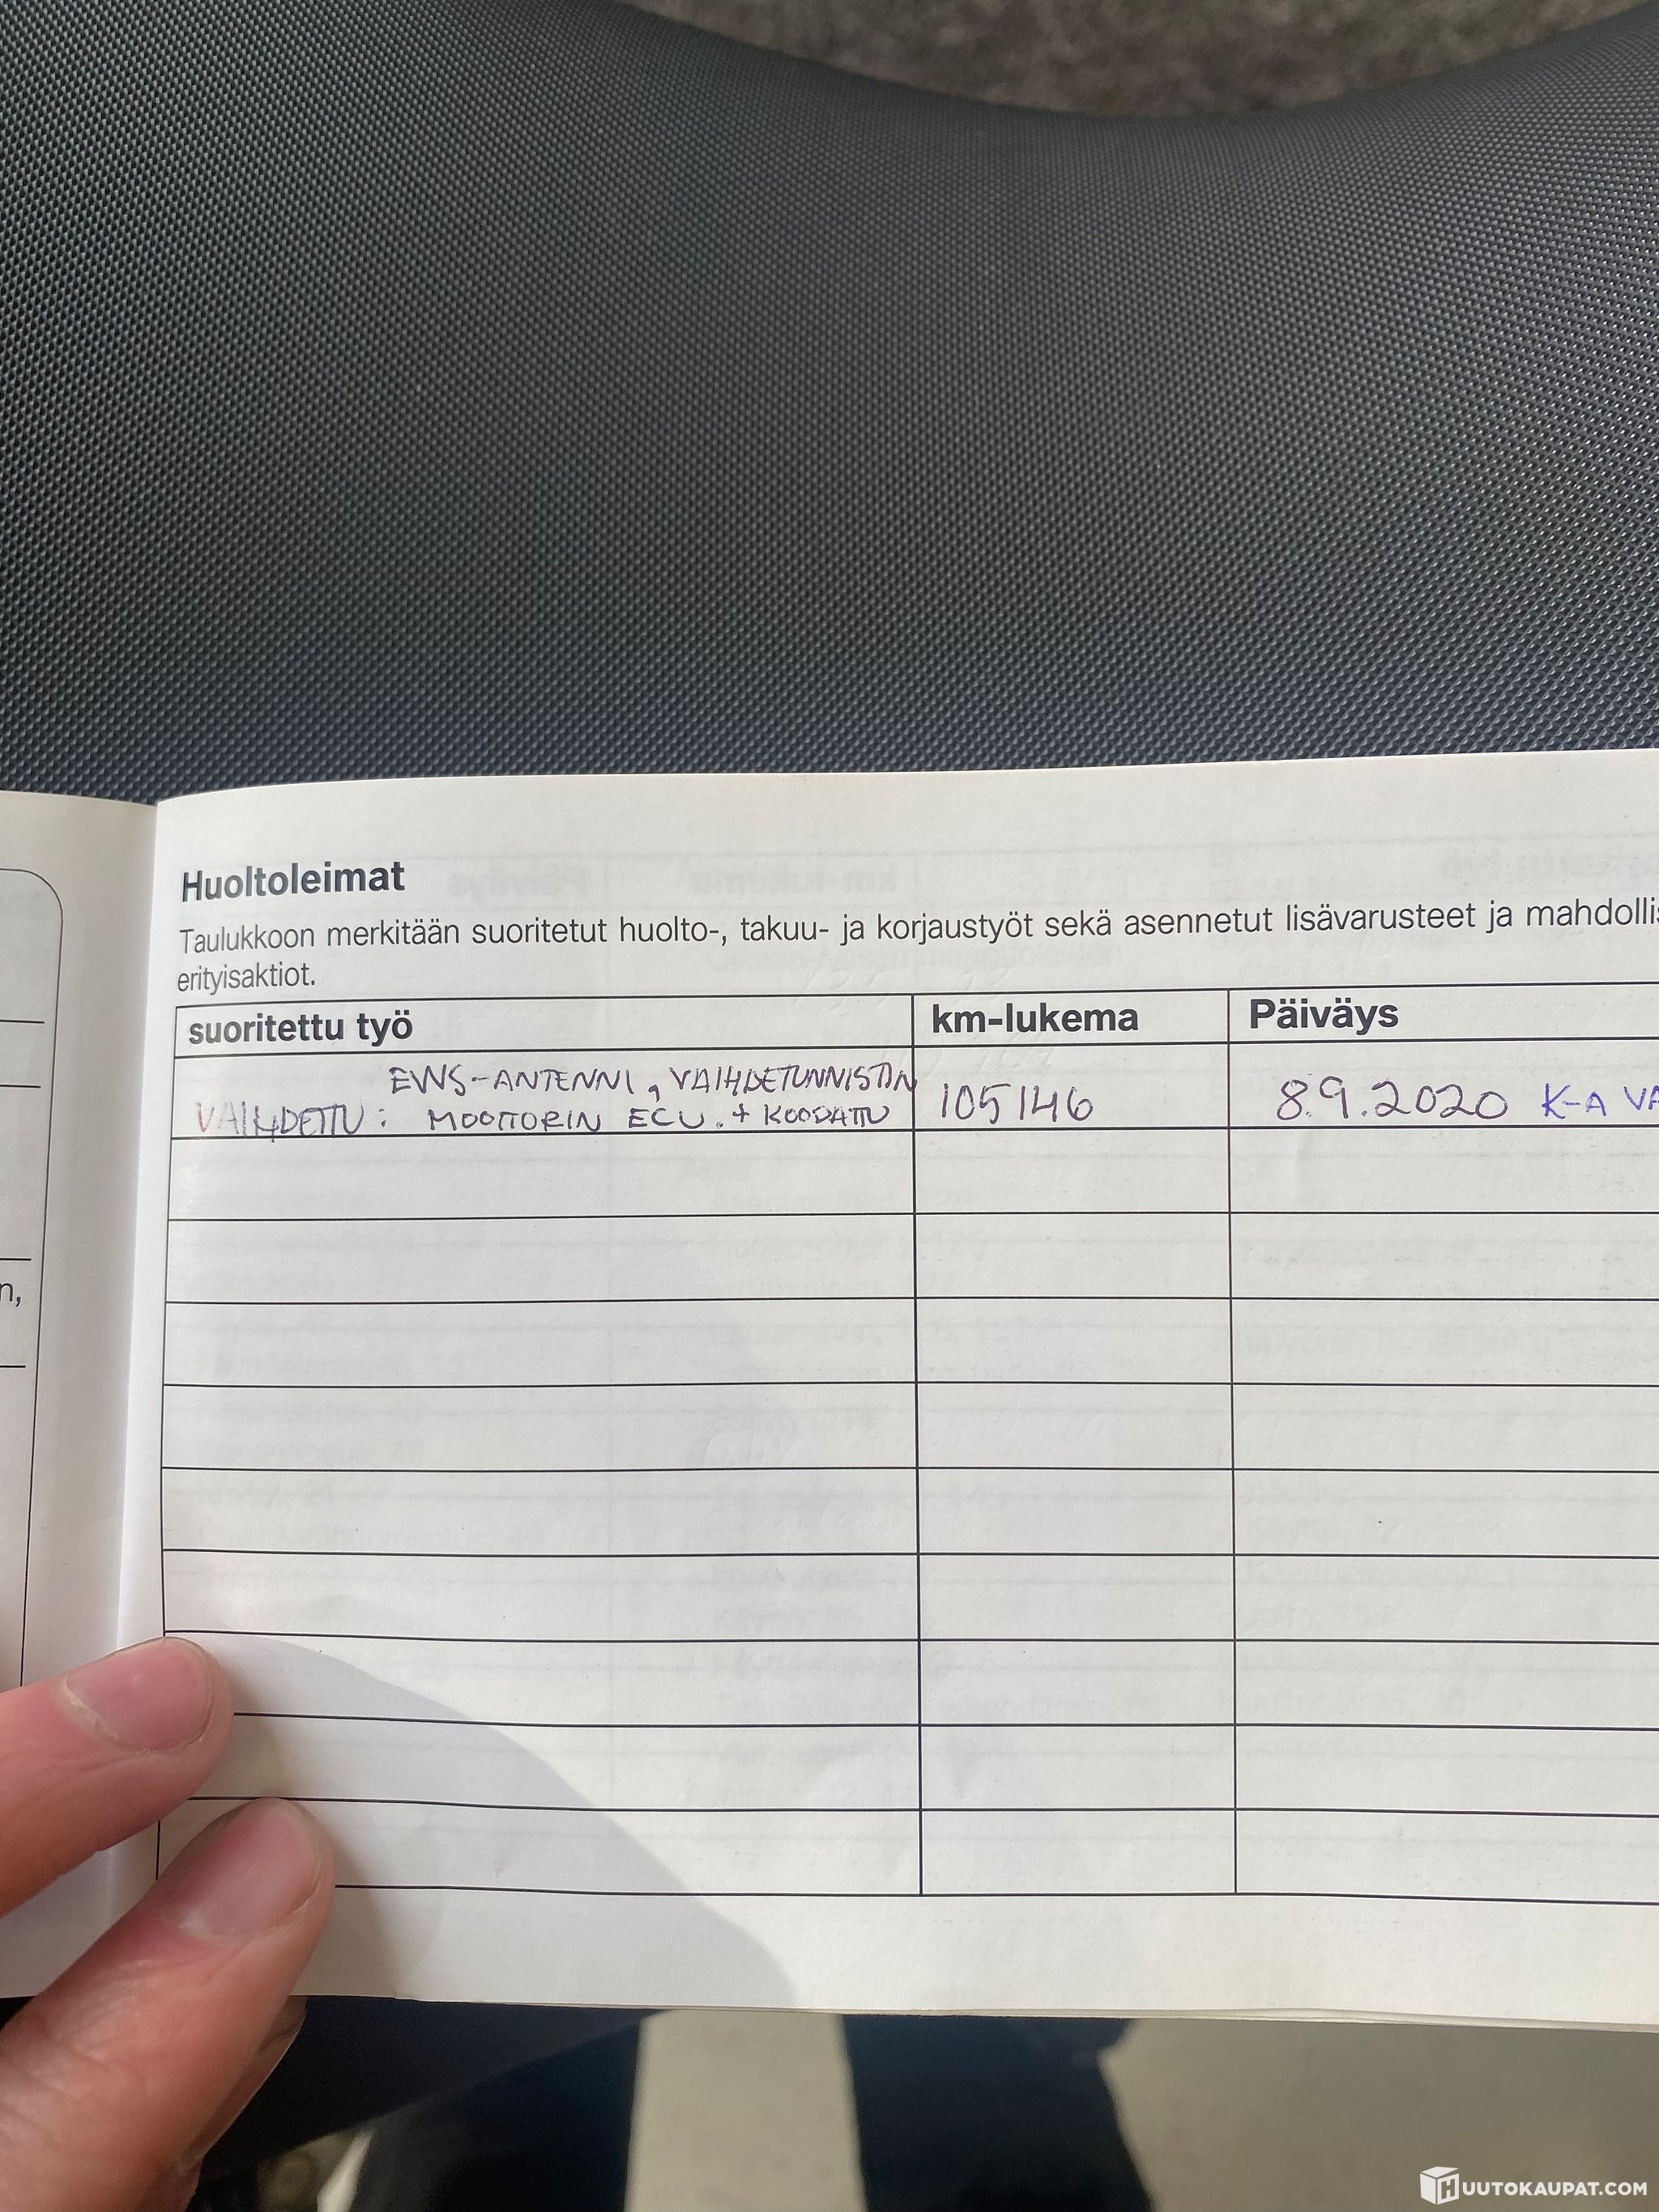 Huoltoleimat
Taulukkoon merkitään suoritetut huolto-, takuu- ja korjaustyöt sekä asennetut lisävarusteet ja mahdollis
erityisaktiot.
suoritettu työ km-lukema Päiväys
EWS-ANTENNI, VAIHDETUNNISTIN
VAIHDETTU: MOOTTORIN ECU. + KOODATTU 105146 8.9.2020 K-A VA
n,
HUUTOKAUPAT.COM